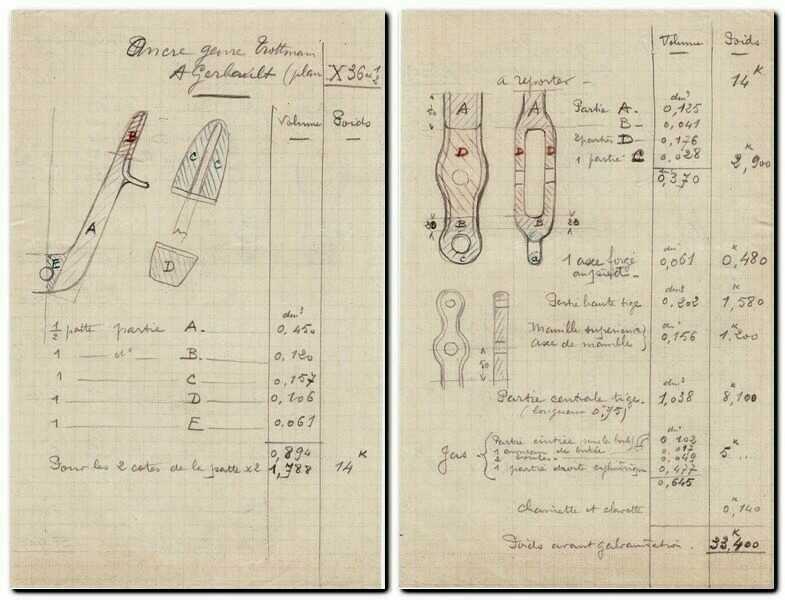 Ancre genre Trottman
A Gerbault (plan X 36 u ½
Volume Poids
B
C C
A
E
D
dm³
½ patte partie A. 0,450
1 — d° — B. 0,120
1 — C — 0,157
1 — D — 0,106
1 — E 0,061
0,894
Pour les 2 cotés de la patte x2 1,788 14 K
Volume Poids
à reporter — 14 K
A A
D D D
B B
20 20
C a
dm³
Partie A. 0,125
B — 0,041
2 parties D — 0,176
1 partie C 0,028 2 K,900
0,370
1 axe forgé dm³ 0,061 0 K,480
Partie haute tige dm³ 0,202 K 1,580
Manille supérieure dm³ 0,156 K 1.200
axe de manille
50
Partie centrale tige. dm³ 1,038 K 8,100
(longueur 0,75)
Jas
dm³
Partie cintrée 0.102
1 anneau de butée 0.017
2 boules 0,049 5 K ..
1 partie droite cylindrique 0,477
0,645
Clavette K 0,140
Poids avant galvanisation. 33 K,400